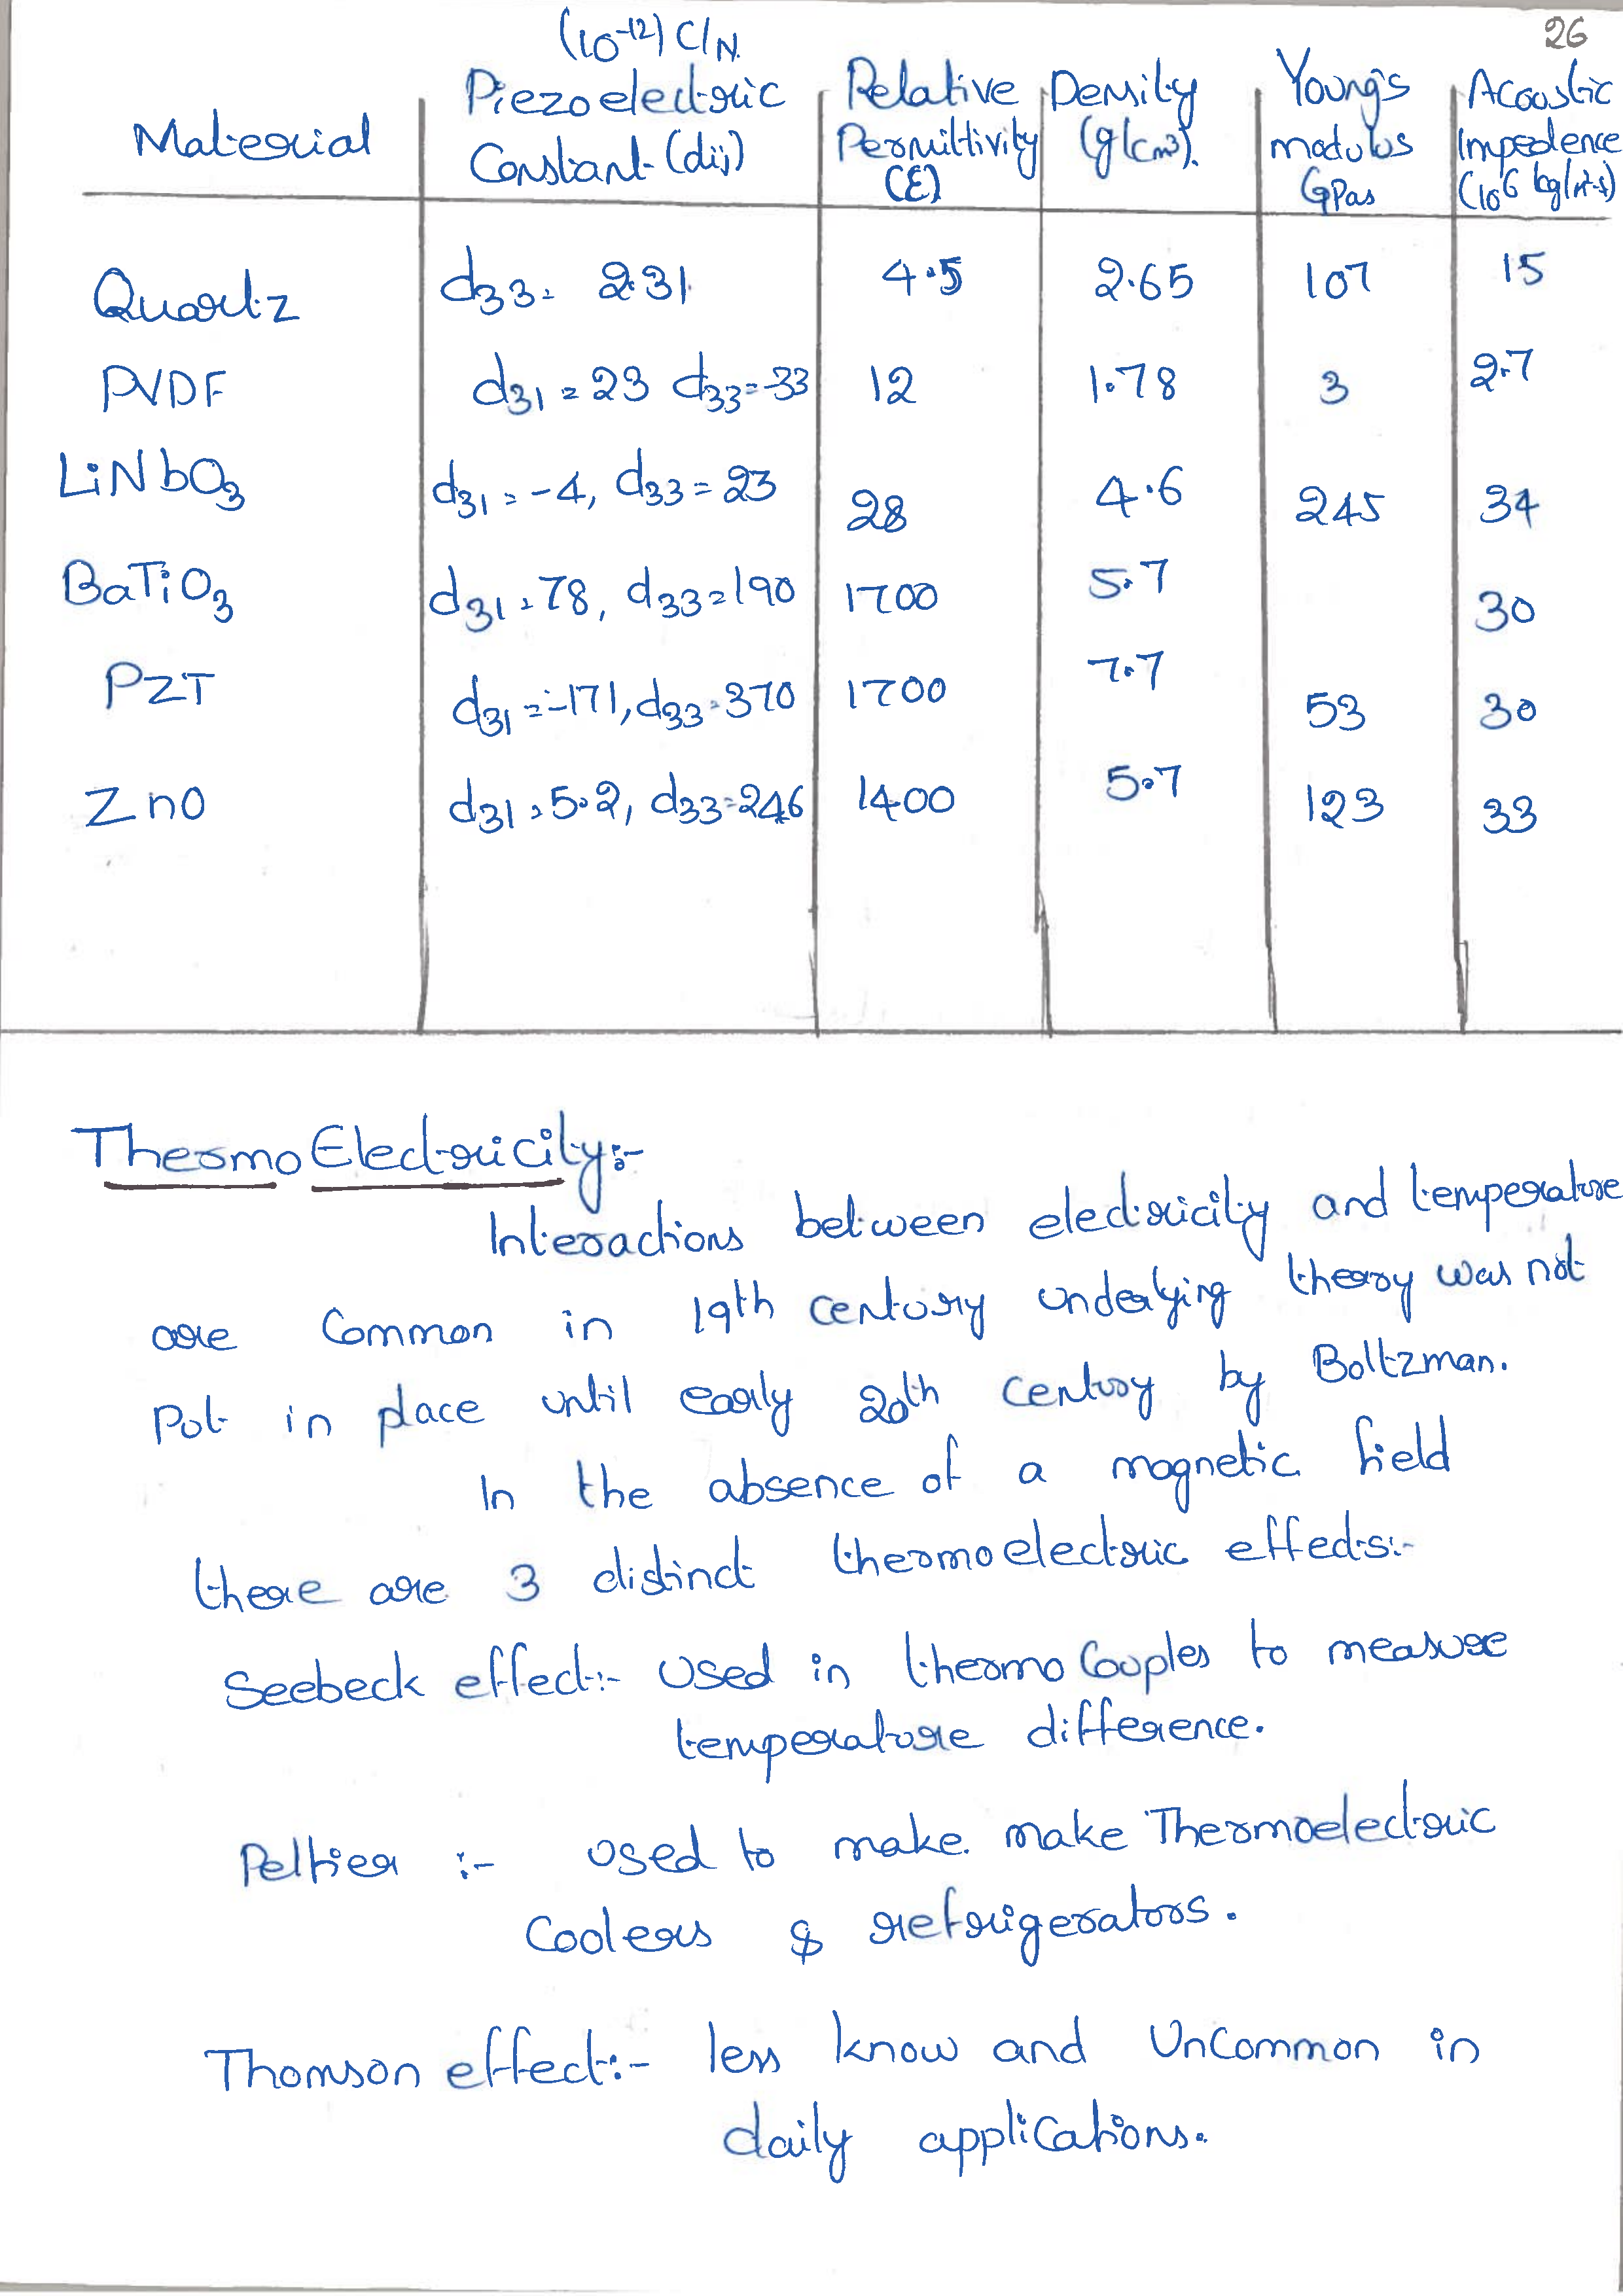 26
(10⁻¹²) C/N.
Material | Piezoelectric Constant (dij) | Relative Permittivity (ε) | Density (g/cm³). | Young's modulus GPas | Acoustic Impedence (10⁶ kg/m²-s)
Quartz | d33 = 2.31 | 4.5 | 2.65 | 107 | 15
PVDF | d31 = 23 d33=-33 | 12 | 1.78 | 3 | 2.7
LiNbO3 | d31 = -4, d33 = 23 | 28 | 4.6 | 245 | 34
BaTiO3 | d31 = 78, d33 = 190 | 1700 | 5.7 | | 30
PZT | d31 = -171, d33 = 370 | 1700 | 7.7 | 53 | 30
ZnO | d31 = 5.2, d33 = 246 | 1400 | 5.7 | 123 | 33
Thermo Electricity:-
Interactions between electricity and temperature
are Common in 19th century underlying theory was not
Put in place until early 20th Century by Boltzman.
In the absence of a magnetic field
there are 3 distinct thermoelectric effects:-
Seebeck effect:- Used in thermo Couples to measure
temperature difference.
Peltier :- Used to make. make Thermoelectric
Coolers & refrigerators.
Thomson effect:- less know and UnCommon in
daily appliCations.